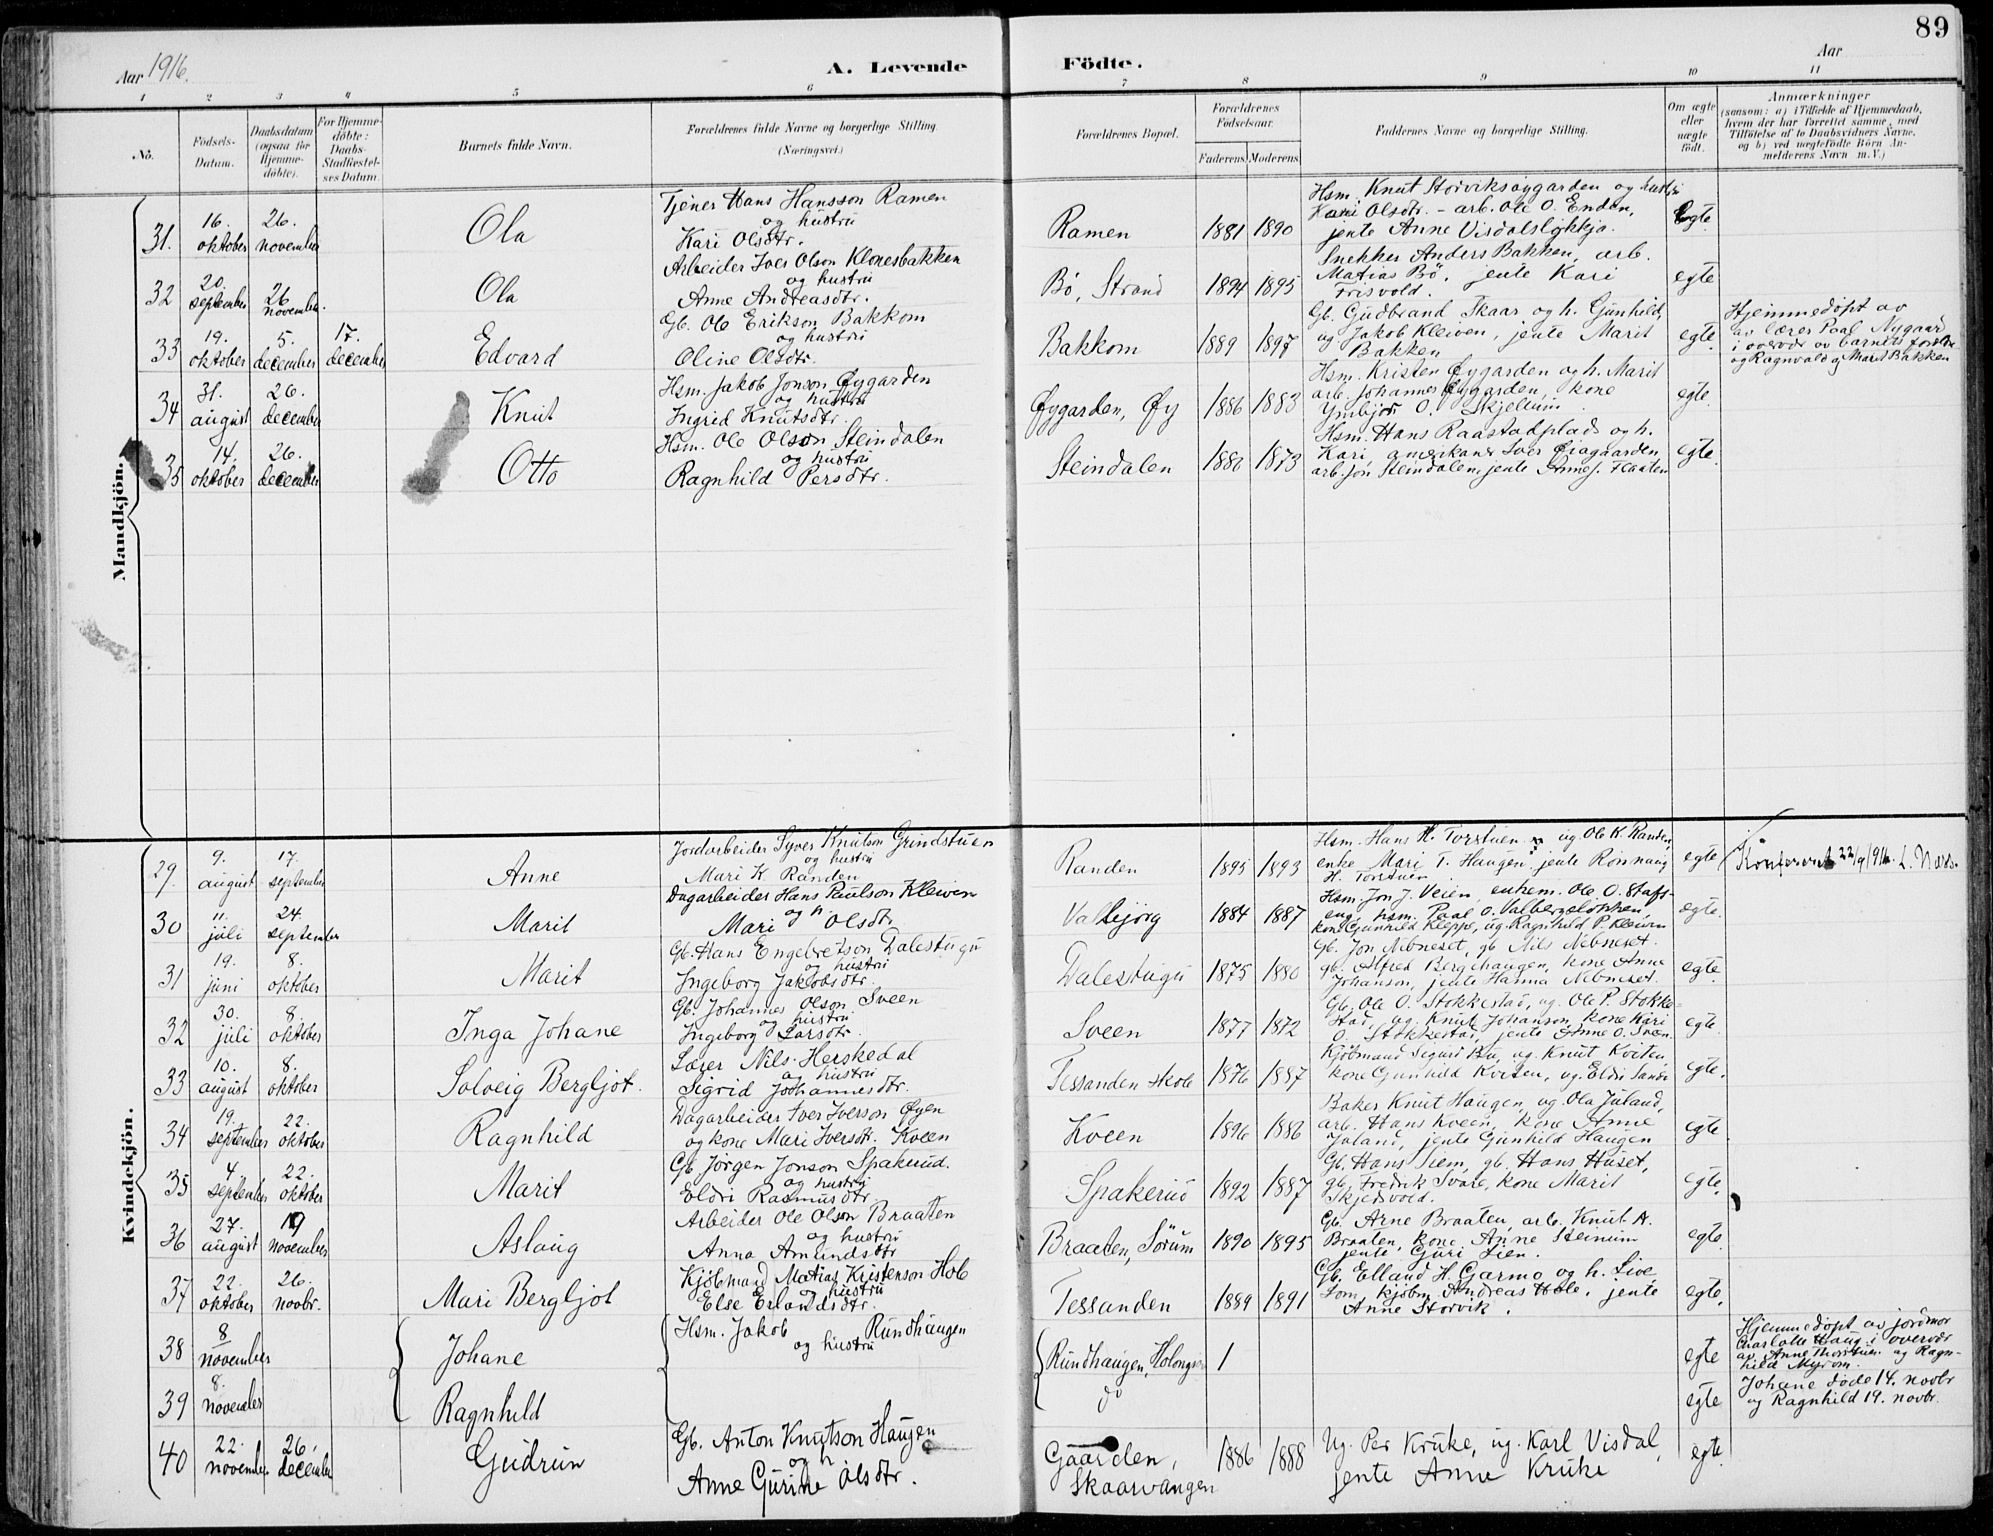 89
Aar 1916.
A. Levende Födte.
Aar
1 2 3 4 5 6 7 8 9 10 11
No.
Födsels-
Datum.
Daabsdatum
(ogsaa for
Hjemme-
döbte).
For Hjemme-
döbte:
Daabs-
Stadfæstel-
ses Datum.
Barnets fulde Navn.
Forældrenes fulde Navne og borgerlige Stilling
(Næringsvei.)
Forældrenes Bopæl.
Forældrenes
Födselsaar.
Faderens Moderens
Faddernes Navne og borgerlige Stilling.
Om ægte
eller
uægte
födt.
Anmærkninger
(saasom: a) i Tilfælde af Hjemmedaab,
hvem der har forrettet samme, med
Tilföielse af to Daabsvidners Navne,
og b) ved uægtefödte Börn An-
melderens Navn m. V.)
Mandkjön.
31.
16.
oktober
26.
november
Ola
Tjener Hans Hansson Ramen
og hustru
Kari Olsdtr.
Ramen
1881 1890
Hsm. Knut Storviksøygarden og hustru
Kari Olsdtr. - arb. Ole O. Enden,
jente Anne Visdalsløkkja.
egte.
32
20.
september
26
november.
Ola
Arbeider Iver Olson Klonesbakken
og hustru
Anne Andreasdtr.
Bö, Strand
1894 1895
Snekker Anders Bakken, arb.
Matias Bö, jente Kari
Frisvold.
egte
33
19.
oktober
5.
december
17.
december
Edvard
Gb. Ole Erikson Bakkom
og hustru
Oline Olsdtr.
Bakkom
1889 1897
Gb. Gudbrand Skaar og h. Gunhild,
ug Jakob Kleiven, jente Marit
Bakken
egte.
Hjemmedöpt av
av lærer Paal Nygaard
i overvær av barnets foreldre
og Ragnvald og Marit Bakken
34
31.
august
26.
december
Knut
Hsm. Jakob Jonson Øygarden
og hustru
Ingrid Knutsdtr.
Øygarden, Øy
1886 1883
Hsm. Kristen Øygarden og h. Marit
arb. Johannes Øygarden, kone
Ymbjör O. Skjellum
egte.
35
14.
oktober
26.
december
Otto
Hsm. Ole Olson Steindalen
og hustru
Ragnhild Persdtr.
Steindalen
1880 1873
Hsm. Hans Raastadplads og h.
Kari, amerikaner Iver Øiagaarden
arb. Jon Steindalen, jente Anne J. Flaaten
egte.
Kvindekjön.
29.
9.
august
17.
september
Anne
Jordarbeider Syver Knutson Grindstuen
og hustru
Mari K Randen
Randen
1895 1893
Hsm. Hans H. Torstuen, ug. Ole K. Randen,
enke Mari T. Haugen, jente Rönnaug
H. Torstuen
egte
Konferert 22/9 1916. L. Næss.
30
11.
juli
24.
september
Marit
Dagarbeider Hans Paulson Kleiven
og h.
Mari Olsdtr.
Valbjörg
1884 1887
Hsm. Jon J. Veien, enkem. Ole O. Stafs-
eng, hsm. Paal O. Valbergsløkken,
kone Gunhild Kleppe, ug. Ragnhild P. Kleiven
egte.
31
19.
juni
8.
oktober
Marit
Gb. Hans Engebretson Dalestugu
og hustru
Ingeborg Jakobsdtr.
Dalestugu
1875 1880
Gb. Jon Nebneset, gb Nils Nebneset.
gb. Alfred Berghaugen, kone Anne
Johanson, jente Hanna Nebneset.
egte.
32
30.
juli
8.
oktober
Inga Johane
Gb. Johannes Olson Sveen
og hustru
Ingeborg Larsdtr.
Sveen
1877 1872
Gb. Ole O. Stokkestad, ug. Ole P. Stokke-
stad, ug. Knut Johanson, kone Kari
O. Stokkestad, jente Anne O. Sveen
egte
33
10.
august
8.
oktober
Solveig Bergljot.
Lærer Nils Herskedal
og hustru
Sigrid Johannesdtr.
Tessanden skole
1876 1887
Kjöbmand Sigurd Bu, ug. Knut Kviten,
kone Gunhild Kviten, ug. Eldri Sande
egte.
34
19.
september
22.
oktober
Ragnhild
Dagarbeider Iver Iverson Øyen
og kone Mari Iversdtr. Kveen
Kveen
1896 1886
Baker Knut Haugen, ug. Ola Juland,
arb. Hans Kveen, kone Anne
Juland, jente Gunhild Haugen
egte.
35
4.
september
22.
oktober
Marit
Gb. Jörgen Jonson Spakerud.
og hustru
Eldri Rasmusdtr.
Spakerud
1892 1887
Gb. Hans Siem, gb. Hans Huset,
gb. Fredrik Svare, kone Marit
Skjedsvold.
egte.
36
27.
august
19
november
Aslaug
Arbeider Ole Olson Braaten
og hustru
Anna Amundsdtr
Braaten, Sörum
1890 1895
Gb. Arne Braaten, arb. Knut A.
Braaten, kone Anne Steinum
jente Guri Lien.
egte.
37
22.
oktober
26.
novbr.
Mari Bergljot
Kjöbmand Matias Kristenson Hole
og hustru
Else Erlandsdtr.
Tessanden
1889 1891
Gb. Elland H. Garmo og h. Live
Tom, kjöbm Andreas Hole, jente
Anne Storvik.
egte.
38
8
november
Johane
Hsm. Jakob Rundhaugen
og hustru
Rundhaugen,
1
egte
Hjemmedöpt av jordmor
Charlotte Haug i overvær
av Anne Thorstuen og Ragn-
hild Myrom.
39
8.
november
Ragnhild
do
egte
Johane döde 14. novbr
og Ragnhild 19. novbr.
40
22.
november
26.
december
Gudrun
Gb. Anton Knutson Haugen
og h.
Anne Gurine Olsdtr.
Gaarden,
Skaarvangen
1886 1888
Ug. Per Kruke, ug. Karl Visdal,
jente Anne Kruke
egte.